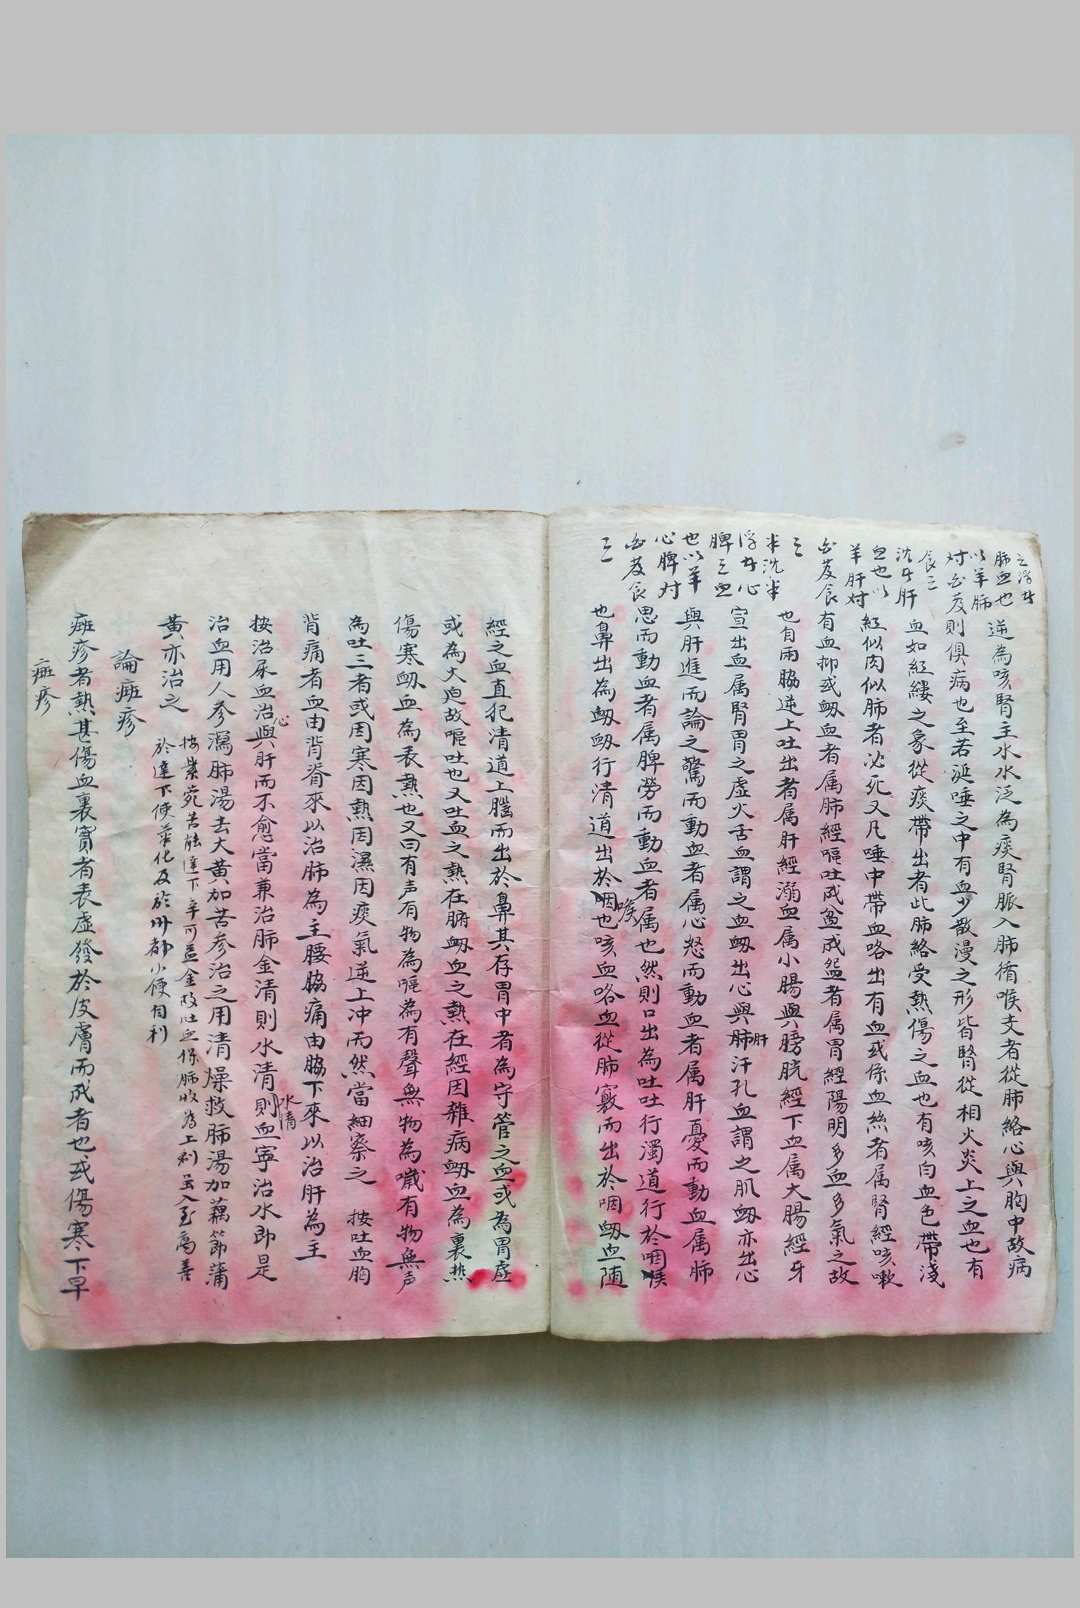 之浮者
肺血也
以羊肺
対白芨
食之
沉者肝
血也以
羊肝対
白芨食
之
半沉半
浮者心
脾之血
也以羊
心脾対
白芨食
之
逆為咳腎主水水泛為痰腎脈入肺循喉支者從肺絡心與胸中故病
則俱病也至若涎唾之中有血少散漫之形皆腎從相火炎上之血也有
血如紅縷之象從痰帶出者此肺絡受熱傷之血也有咳白血色帶淺
紅似肉似肺者必死又凡唾中帶血咯出有血或係血絲者属腎經咳嗽
有血抑或衂血者属肺經嘔吐成盆成盌者属胃經陽明多血多氣之故
也自両脇逆上吐出者属肝經溺血属小腸與膀胱經下血属大腸經牙
宣出血属腎胃之虛火舌血謂之血衂出心與肺肝汗孔血謂之肌衂亦出心
與肝進而論之驚而動血者属心怒而動血者属肝憂而動血属肺
思而動血者属脾勞而動血者属也然則口出為吐吐行濁道行於咽
也鼻出為衂衂行清道出於喉也咳血咯血從肺竅而出於咽衂血随
經之血直犯清道上膛而出於鼻其存胃中者為守管之血或為胃虛
或為火迫故嘔吐也又吐血之熱在腑衂血之熱在經因雜病衂血為裏热
傷寒衂血為表熱也又曰有声有物為嘔為有聲無物為噦有物無声
為吐三者或因寒因熱因濕因痰氣逆上冲而然當細察之 按吐血胸
背痛者血由背脊來以治肺為主腰脇痛由脇下來以治肝為主
按治尿血治心與肝而不愈當兼治肺金清則水清水清則血寧治水即是
治血用人參瀉肺湯去大黃加苦參治之用清燥救肺湯加藕節蒲
黃亦治之
按紫菀苦能達下辛可益金故吐血保肺收為上剤並入至高善
於達下使氣化及於州都小便自利
論痳疹
痳疹者熱甚傷血裏實者表虛發於皮膚而成者也或傷寒下早
痳疹